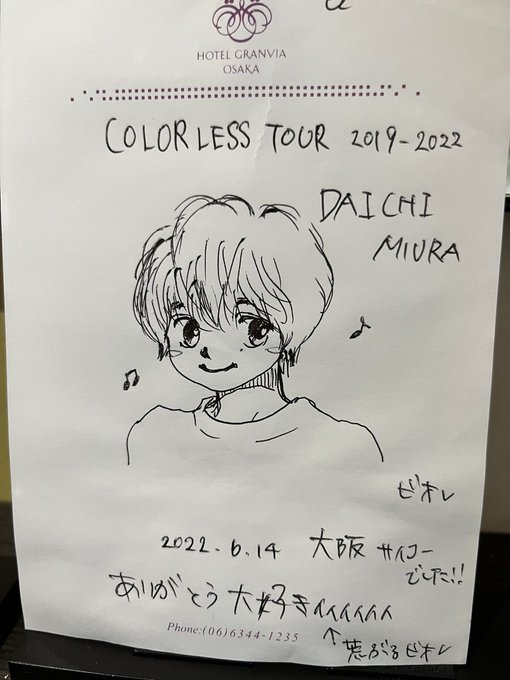 HOTEL GRANVIA
OSAKA
COLORLESS TOUR 2019-2022
DAICHI
MIURA
ビオレ
2022.6.14 大阪 サイコー
でした!!
ありがとう大好きイイイイイイ
Phone:(06)6344-1235
↑荒ぶるビオレ